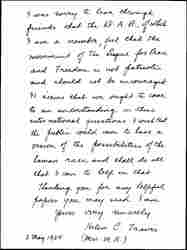 I was sorry to learn through
friends that the D. A. R. of which
I am a member, felt that the
movement of the League for Peace
and Freedom is not patriotic
and should not be encouraged.
It seems that we ought to come
to an understanding in these
international questions. I wish that
the fathers would come to have a
vision of the possibilities of the
human race and shall do all
that I can to help in that.
Thanking you for any helpful
papers you may send I am
Yours very sincerely
Helen C.
2 May 1924 (Mrs. W. R.)